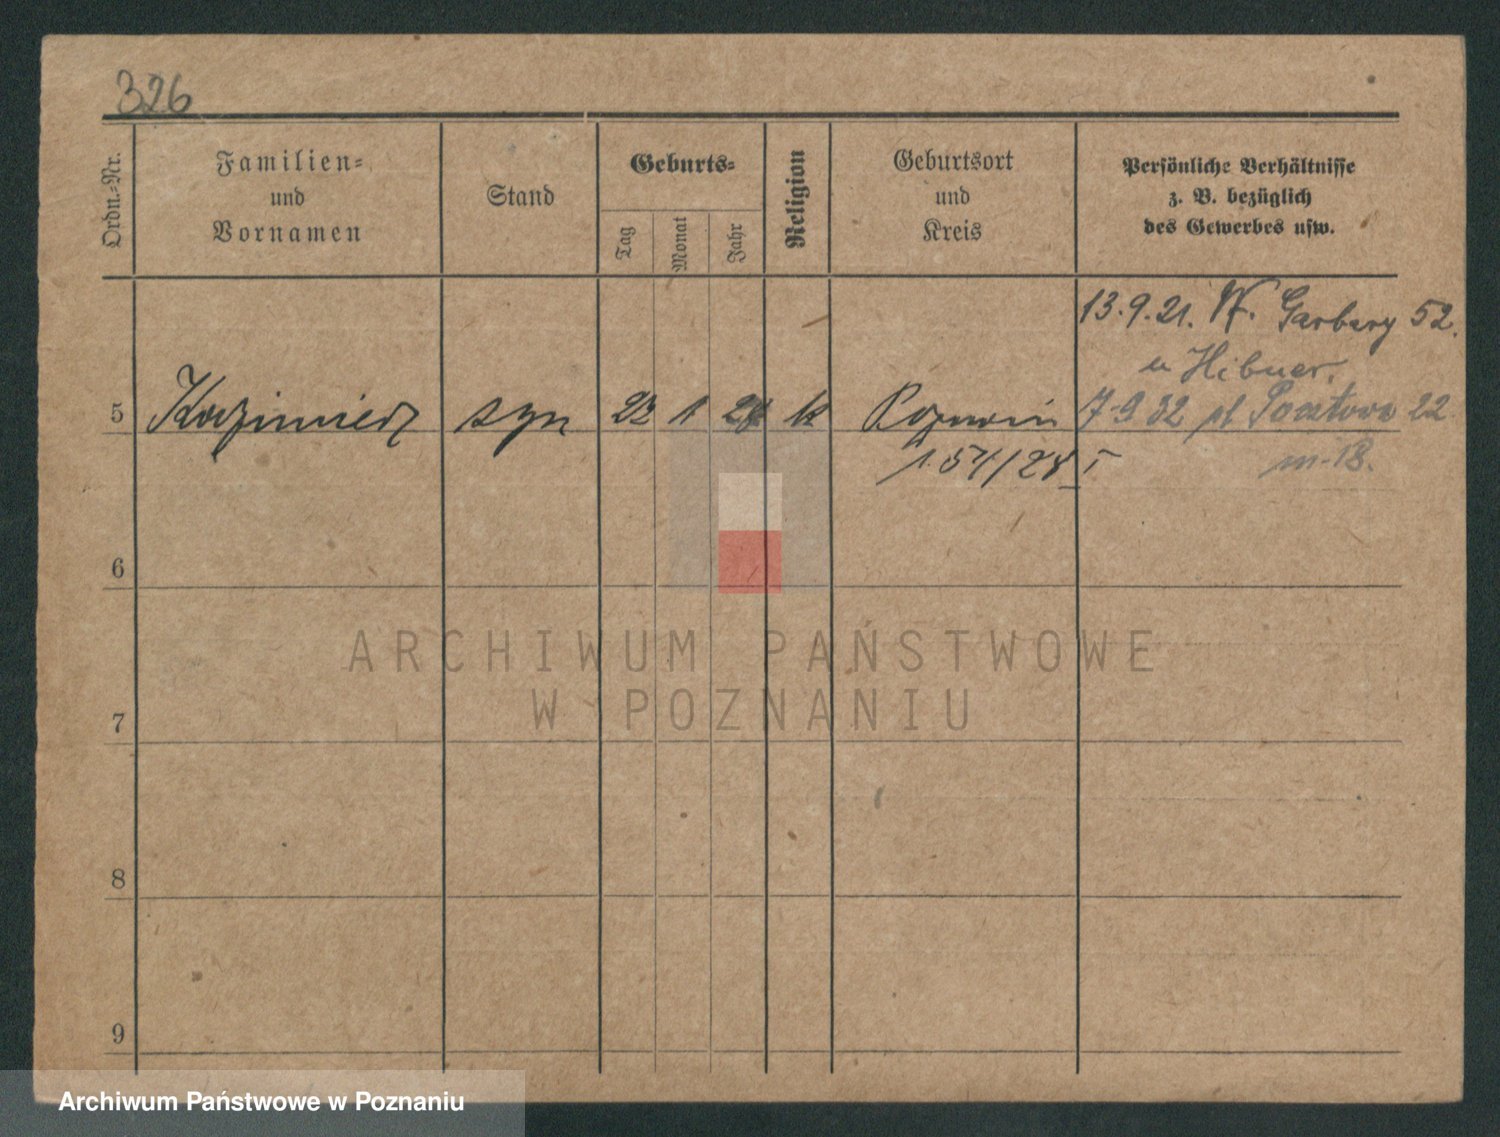 326
Ordn.-Nr.
Familien-
und
Vornamen
Stand
Geburts-
Tag
Monat
Jahr
Religion
Geburtsort
und
Kreis
Persönliche Verhältnisse
z. B. bezüglich
des Gewerbes usw.
13.9.21. W. Garbary 52.
u Hibner.
5 Kazimierz syn 23 1 28 k Poznań 7-9 32 pl Pocztowa 22
1.54/28 I m-18.
6
ARCHIWUM PAŃSTWOWE
W POZNANIU
7
8
9
Archiwum Państwowe w Poznaniu